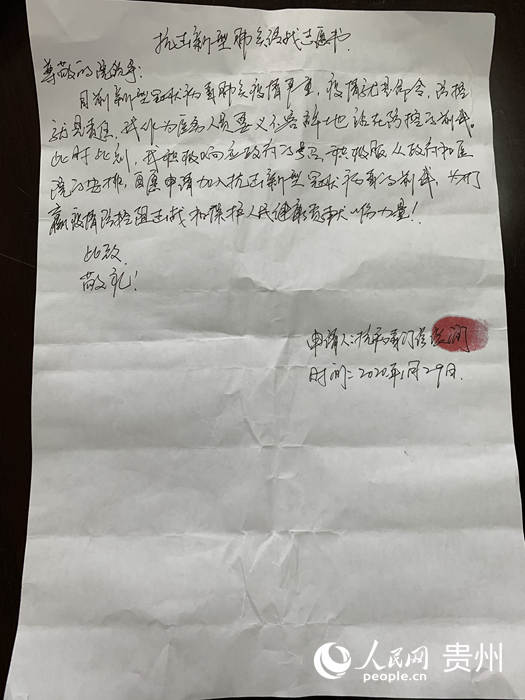 抗击新型肺炎请战志愿书
尊敬的院领导:
目前新型冠状病毒肺炎疫情严重,疫情就是命令,防控
就是责任,我作为医务人员要义不容辞地站在防控的前线。
此时此刻,我积极响应政府的号召,积极服从政府和医
院的安排,自愿申请加入抗击新型冠状病毒的前线,为打
赢疫情防控阻击战和保护人民健康贡献一份力量!
此致
敬礼!
申请人:抗病毒门诊
时间:2020年1月29日.
人民网 贵州
people.cn